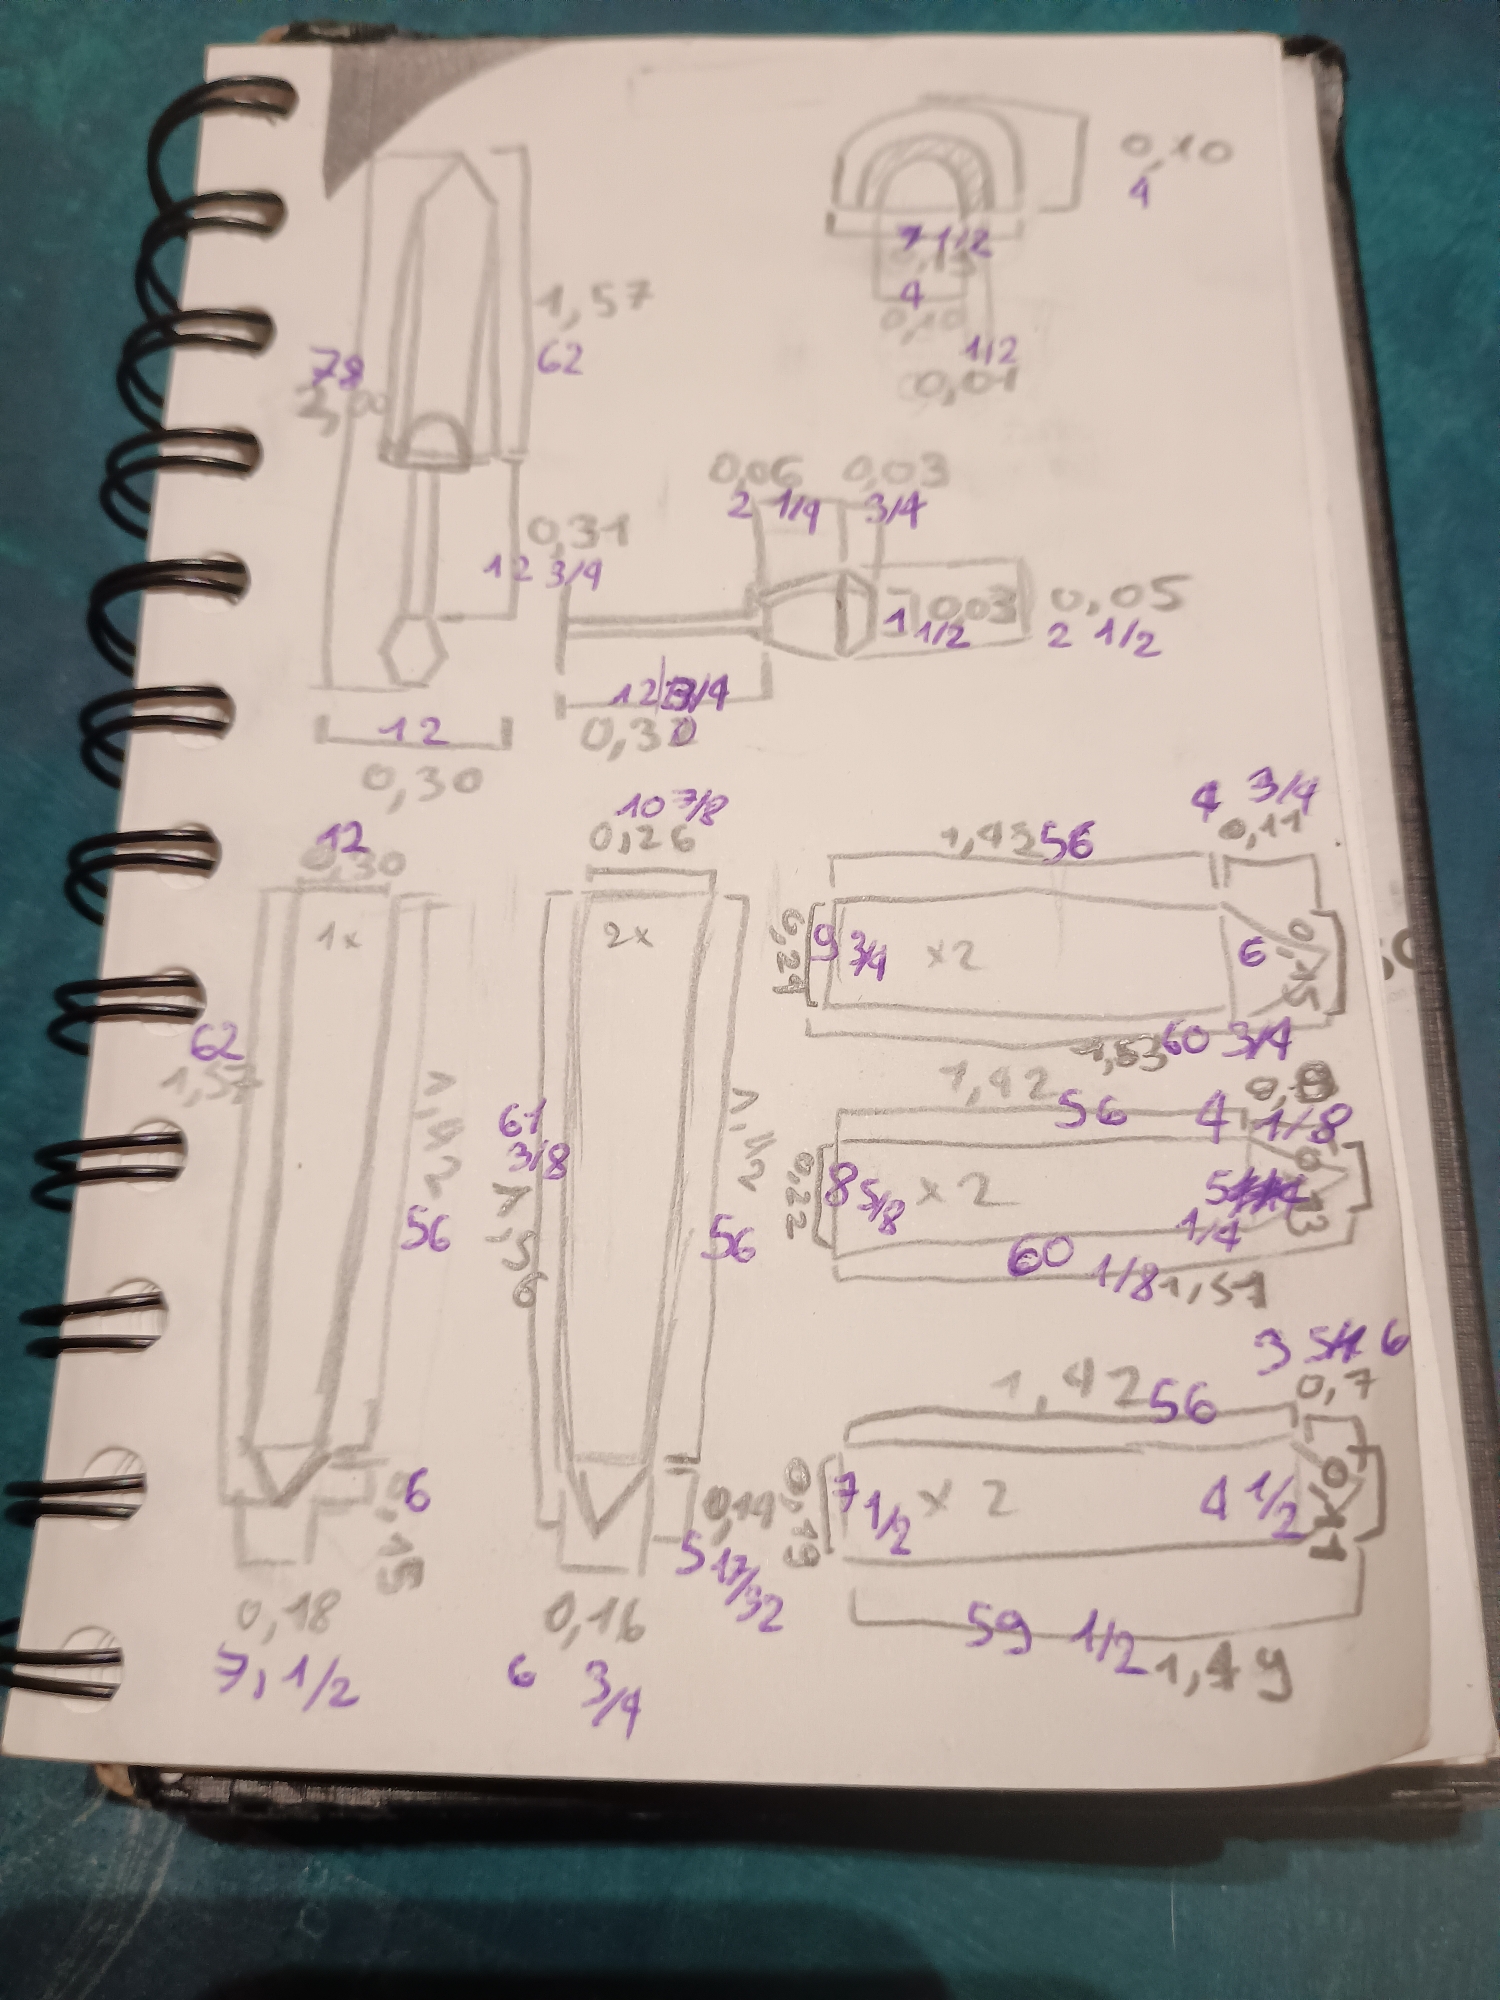 0,10
4
7 1/2
0,13
4
0,10
1/2
0,01
1,57
62
78
2,00
0,31
12 3/4
12
0,30
0,06 0,03
2 1/4 3/4
0,03 0,05
1 1/2 2 1/2
12 3/4
0,30
12
0,30
1x
62
1,57
1,42
56
6
0,15
0,18
7, 1/2
10 7/8
0,26
2x
61
3/8
1,56
1,42
56
0,14
5 17/32
0,16
6 3/4
4 3/4
1,42 56 0,11
0,24 9 3/4 x2 6 0,15
1,53 60 3/4
1,42
56 4 1/8
0,22 8 5/8 x2 5 1/4 0,13
60 1/8 1,51
3 6
1,42 56 0,7
0,19 7 1/2 x2 4 1/2 0,11
59 1/2 1,49